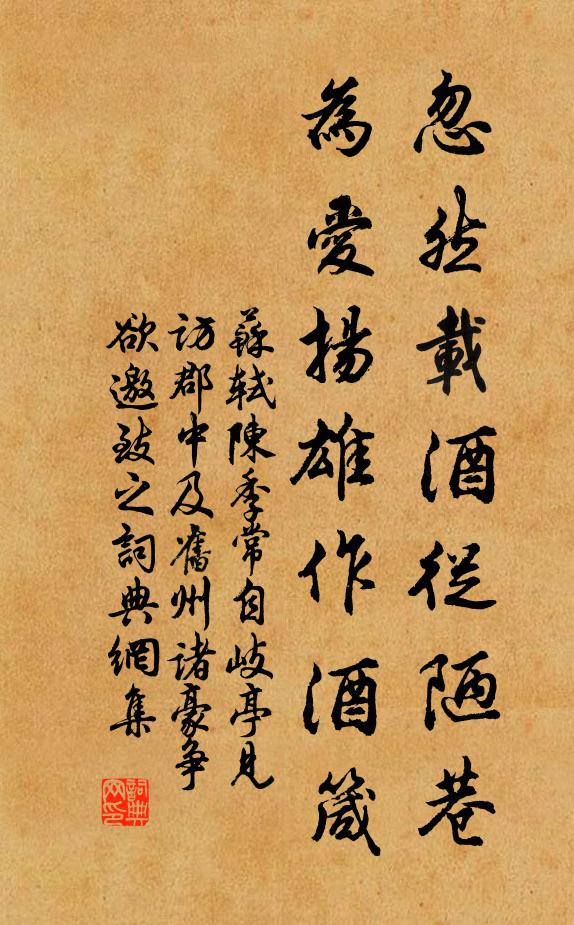 忽然載酒從陋巷
為愛揚雄作酒箴
蘇軾陳季常自岐亭見
訪郡中及舊州諸豪争
欲邀致之詞典網集
詞典
网印